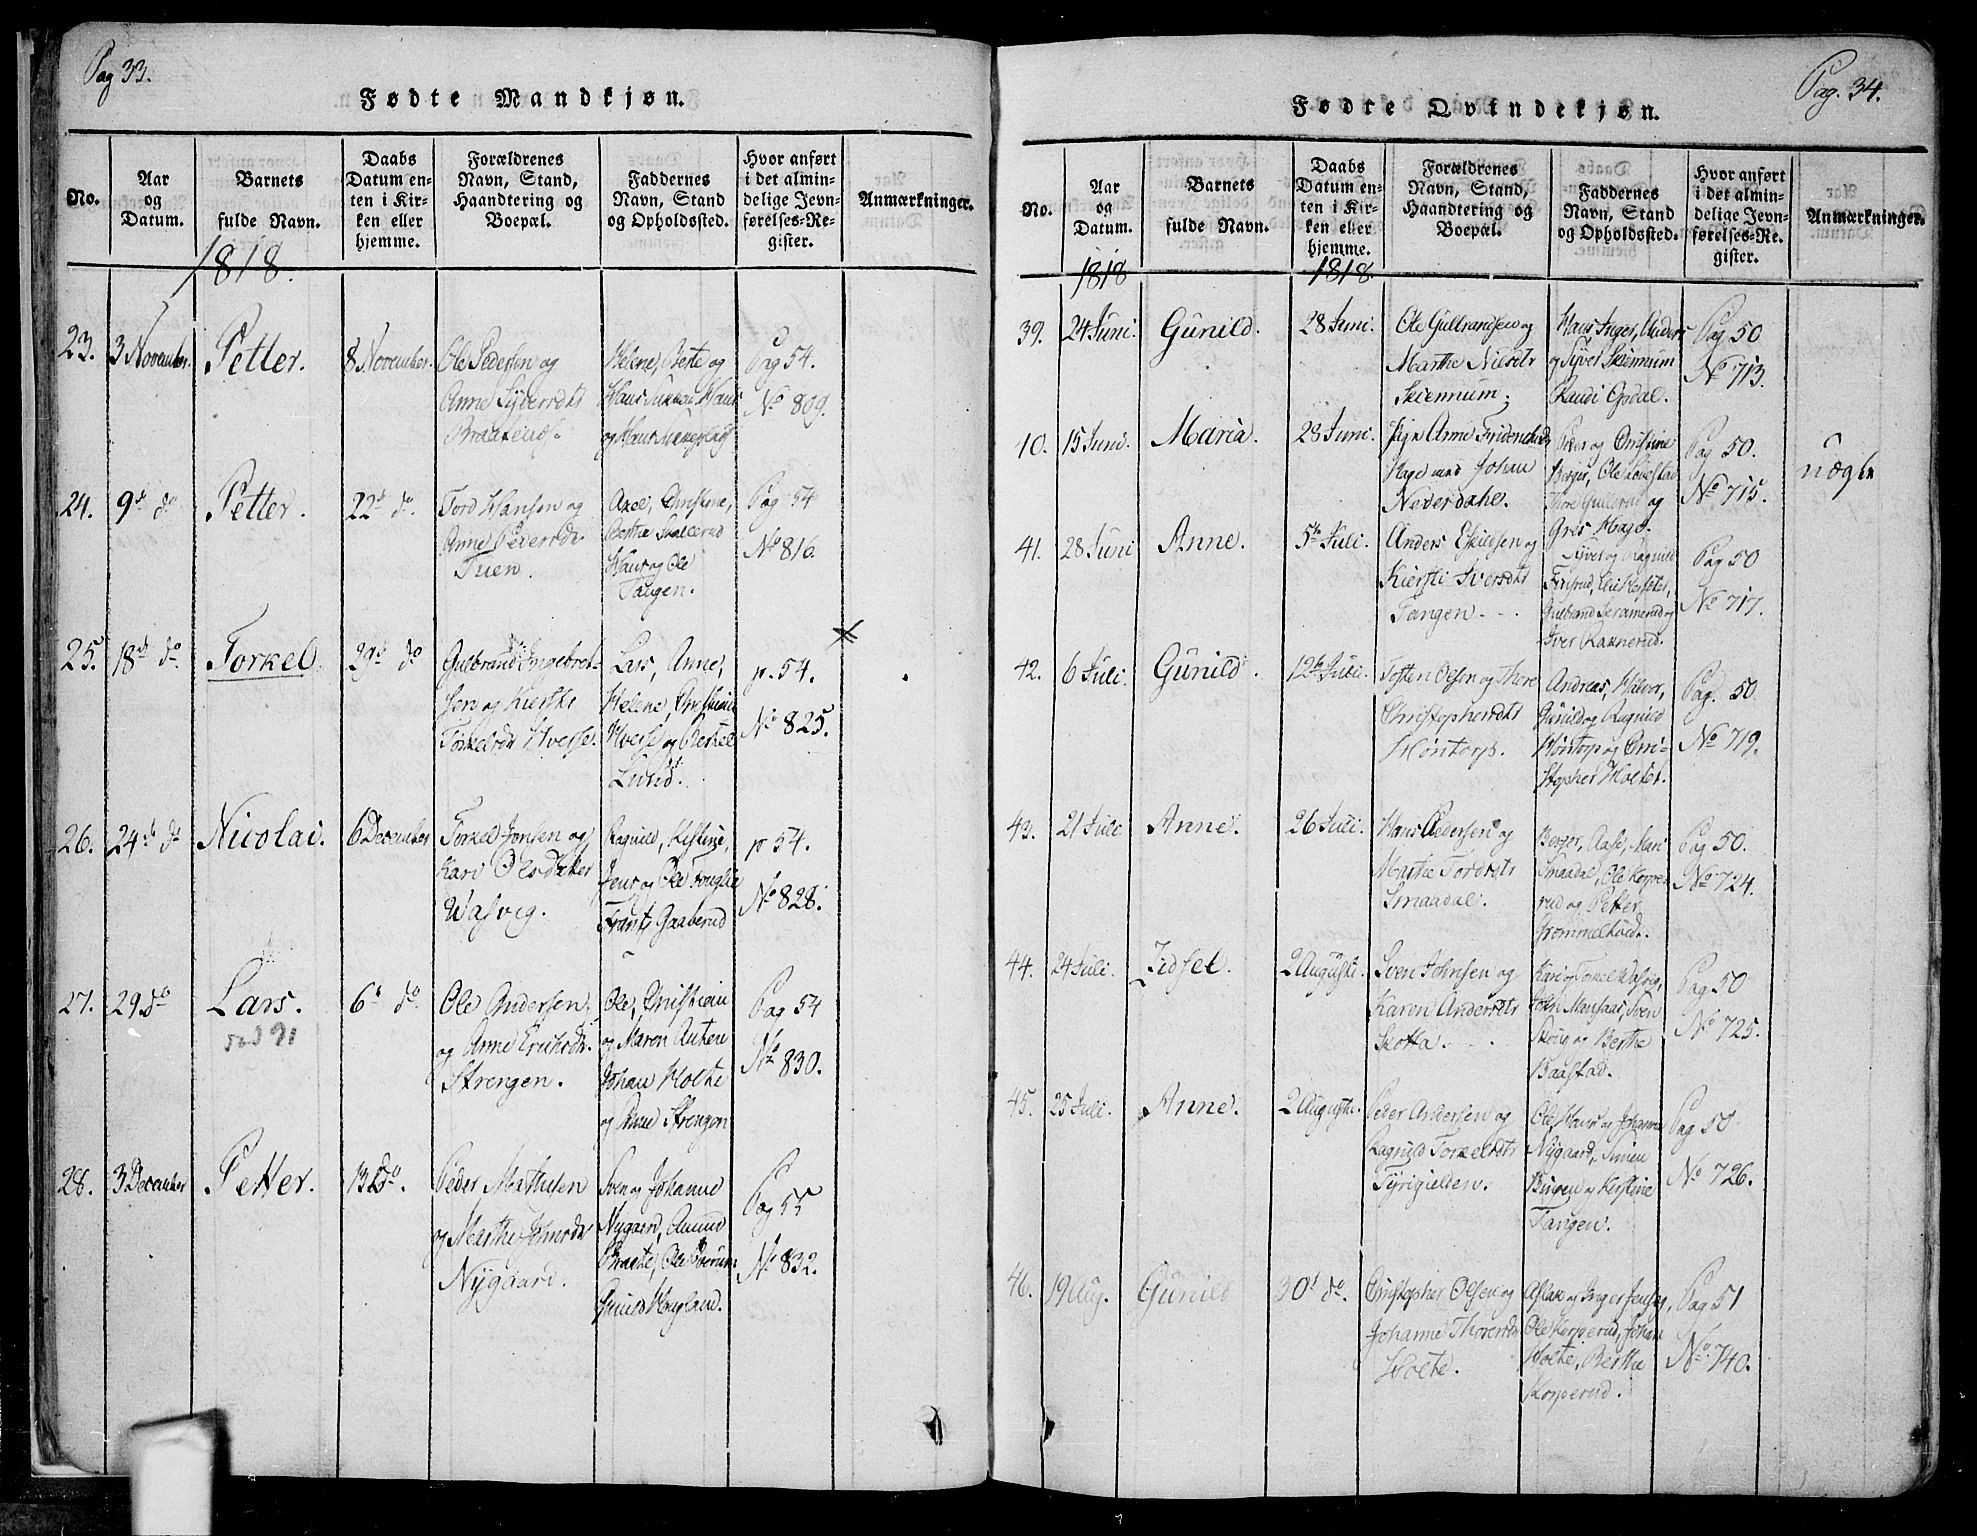 Pag 33.
Fødte Mandkjøn.
No.
Aar
og
Datum.
Barnets
fulde Navn.
Daabs
Datum en-
ten i Kir-
ken eller
hjemme.
Forældrenes
Navn, Stand,
Haandtering og
Boepæl.
Faddernes
Navn, Stand
og Opholdssted.
Hvor anført
i det almin-
delige Jevn-
førelses-Re-
gister.
Anmærkninger.
1818.
23.
3 November.
Petter.
8 November.
Ole Pedersen og
Anne Syversdtr
Braatend.
Helene, Berte og
Hans
og Hans
Pag 54.
No 809.
24.
9de do
Petter.
22de do.
Tord Hansen og
Anne Pedersdr.
Tuen.
Axel, Christine,
Berthe Skallerud
Hans og Ole
Tangen.
Pag 54
No 816.
25.
18de do.
Torkel.
29de do
Gulbrand Ingebret-
sen og Kierstie
Torkelsdr Hverse.
Lars, Anne,
Helene, Christian
Hverse og Berthe
Lund.
p. 54.
No 825.
26.
24de do
Nicolai.
6 December
Torkel Jonsen og
Kari Olsdatter
Wasvig.
Ragnild, Kistine,
Jens og Ole Fouglie
Frants Gaaserud
p 54.
No 828.
27.
29 do
Lars.
6te do.
Ole Andersen
og Anne Erichsdr.
Strengen.
Ole, Christian
og Maren Auten
Johan Holte
og Anne Strengen
Pag 54
No 830.
28.
3 December
Petter.
13 do.
Peder Mathisen
og Marthe Johnsdr
Nygaard.
Sven og Johanne
Nygaard, Amund
Braate, Ole
Hougland.
Pag 55
No 832.
Pag. 34.
Fødte Qvindekjøn.
No.
Aar
og
Datum.
Barnets
fulde Navn.
Daabs
Datum en-
ten i Kir-
ken eller
hjemme.
Forældrenes
Navn, Stand,
Haandtering og
Boepæl.
Faddernes
Navn, Stand
og Opholdssted.
Hvor anført
i det almin-
delige Jevn-
førelses-Re-
gister.
Anmærkninger.
1818
1818.
39.
24 Juni.
Gunild.
28 Juni.
Ole Gulbrandsen og
Marthe Nielsdtr
Skiennum;
Hans, Inger, Anders
og Syver Skiennum
Randi Opdal.
Pag 50
No 713.
40.
15 Juni.
Maria.
28 Juni.
Pige Anne
Hage med Johan
Nederdahl.
Peder og Christine
Berger, Ole
Thore Gullerud og
Gras Hage.
Pag 50.
No 715.
uægte
41.
28 Juni
Anne.
5te Juli.
Anders Eskildsen og
Kiersti Iversdtr
Tangen.
Syver og Ragnild
Gulbrand
Iver Ramerud.
Pag 50
No 717.
42.
6 Juli.
Gunild.
12te Juli.
Tosten Olsen og Thore
Christophersdtr
Høntorp.
Andreas, Halvor,
Gunild og Ragnild
Høntorp og Chri-
stopher Holter.
Pag. 50
No 719.
43.
21 Juli
Anne.
26 Juli.
Hans Pedersen og
Marthe Tordsdtr
Smaadal.
Berger, Aase, Mari
Smaadal, Ole Korpe-
rud og Petter
Pag 50.
No 724.
44.
24 Juli.
Zidsel.
2 Augusti.
Sven Johnsen og
Karen Andersdtr
Skotta.
Kari og Torkel Wasvig,
John Mensaas, Sven
Skoug og Berthe
Baastad.
Pag 50
No 725.
45.
25 Juli.
Anne.
2 Augusti.
Peder Andersen og
Ragnild Torkelsdtr
Tyrigielden.
Ole, Hans og Johanne
Nygaard, Simen
Buren og Kirstine
Tangen.
Pag 50
No 726.
46.
19 Aug.
Gunild
30te do.
Christopher Olsen og
Johanne Thorersdr
Holte.
Aslak og Inger
Ole Korperud, Johan
Holte, Berthe
Korperud.
Pag 51
No 740.